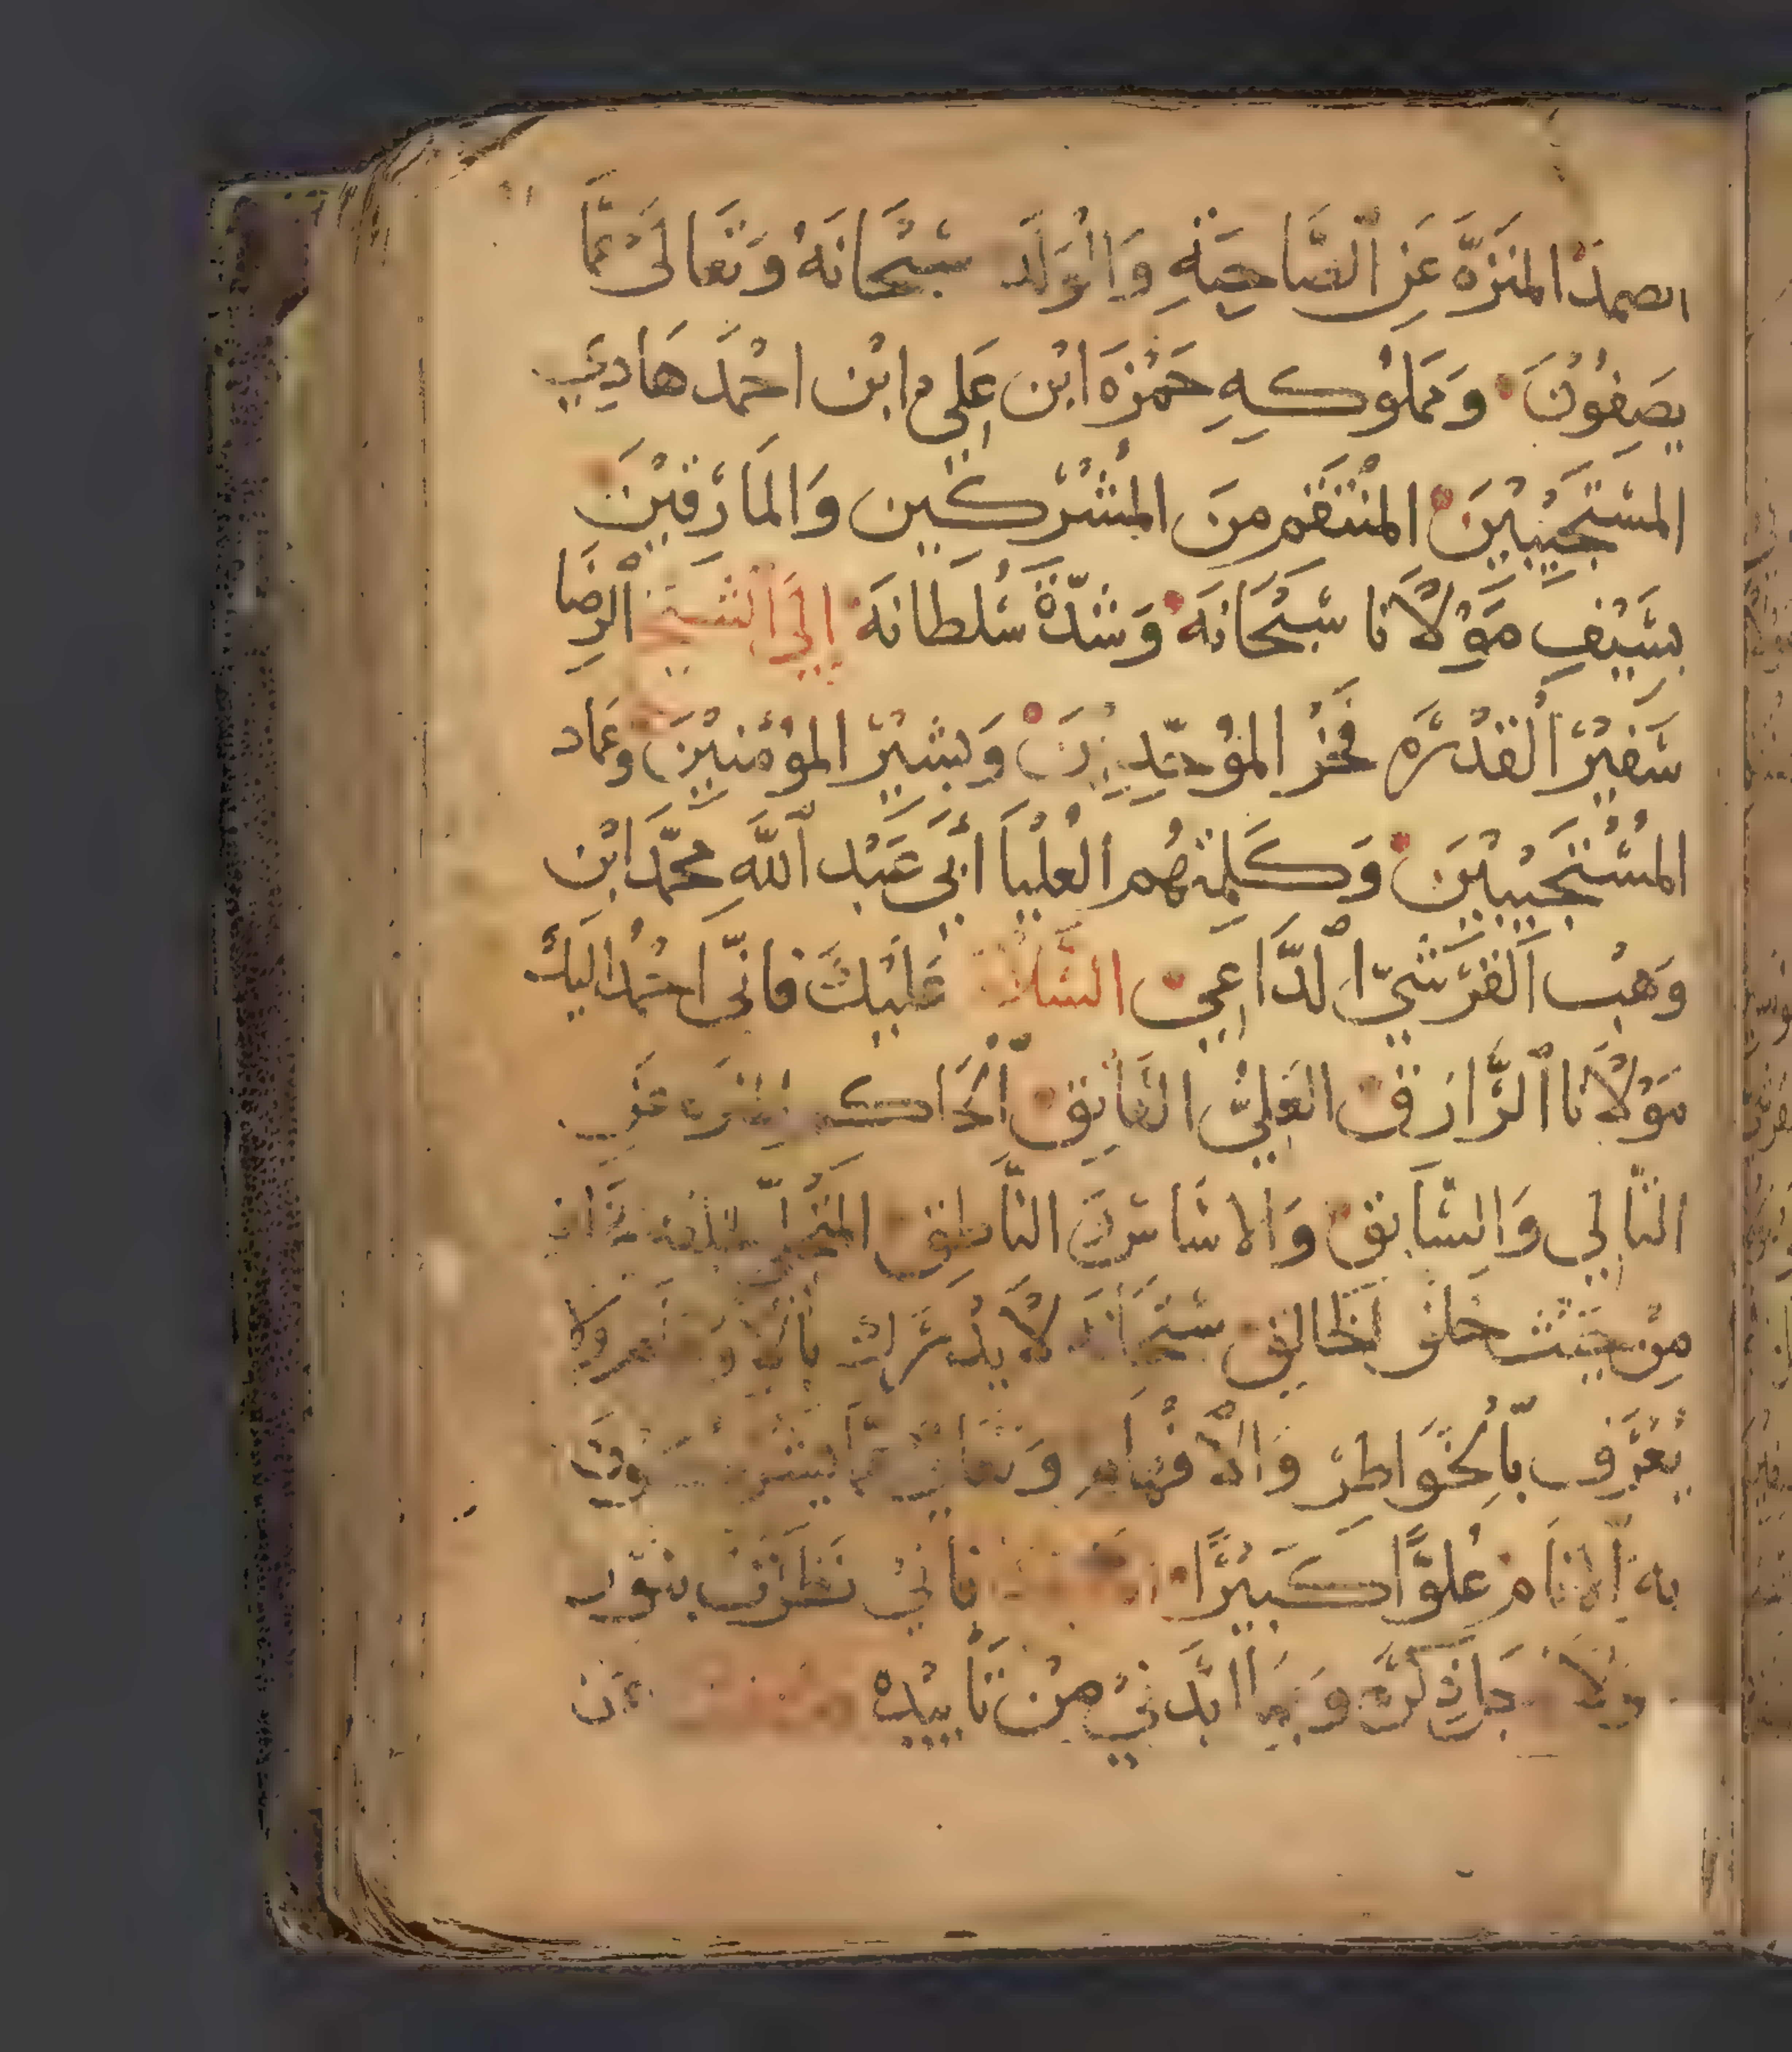 الصمد المنزه عن الصاحبة والولد سبحانه وتعالى عما
يصفون ومملوكه حمزه ابن علي ابن احمد هادي
المستجيبين المنتقم من المشركين والمارقين
بسيف مولانا سبحانه وشدة سلطانه إلى الشيخ الرضا
سفير القدره فخر الموحدين وبشير المؤمنين وعماد
المستجيبين وكلمتهم العليا أبي عبد الله محمد ابن
وهب القرشي الداعي السلام عليك فاني احمد اليك
مولانا الرازق العلي
التالي والسابق والاساس الناطق
من حيث خلق الخالق سبحانه لا يدرك ولا
يعرف بالخواطر والافهام وتعالى
به الانام علوا كبيرا نظرت بنور
من تأييده من